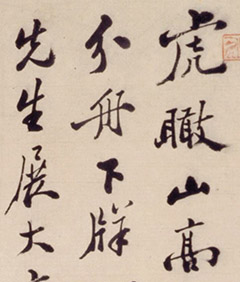 虎瞰山高
分舟下牂
先生展大